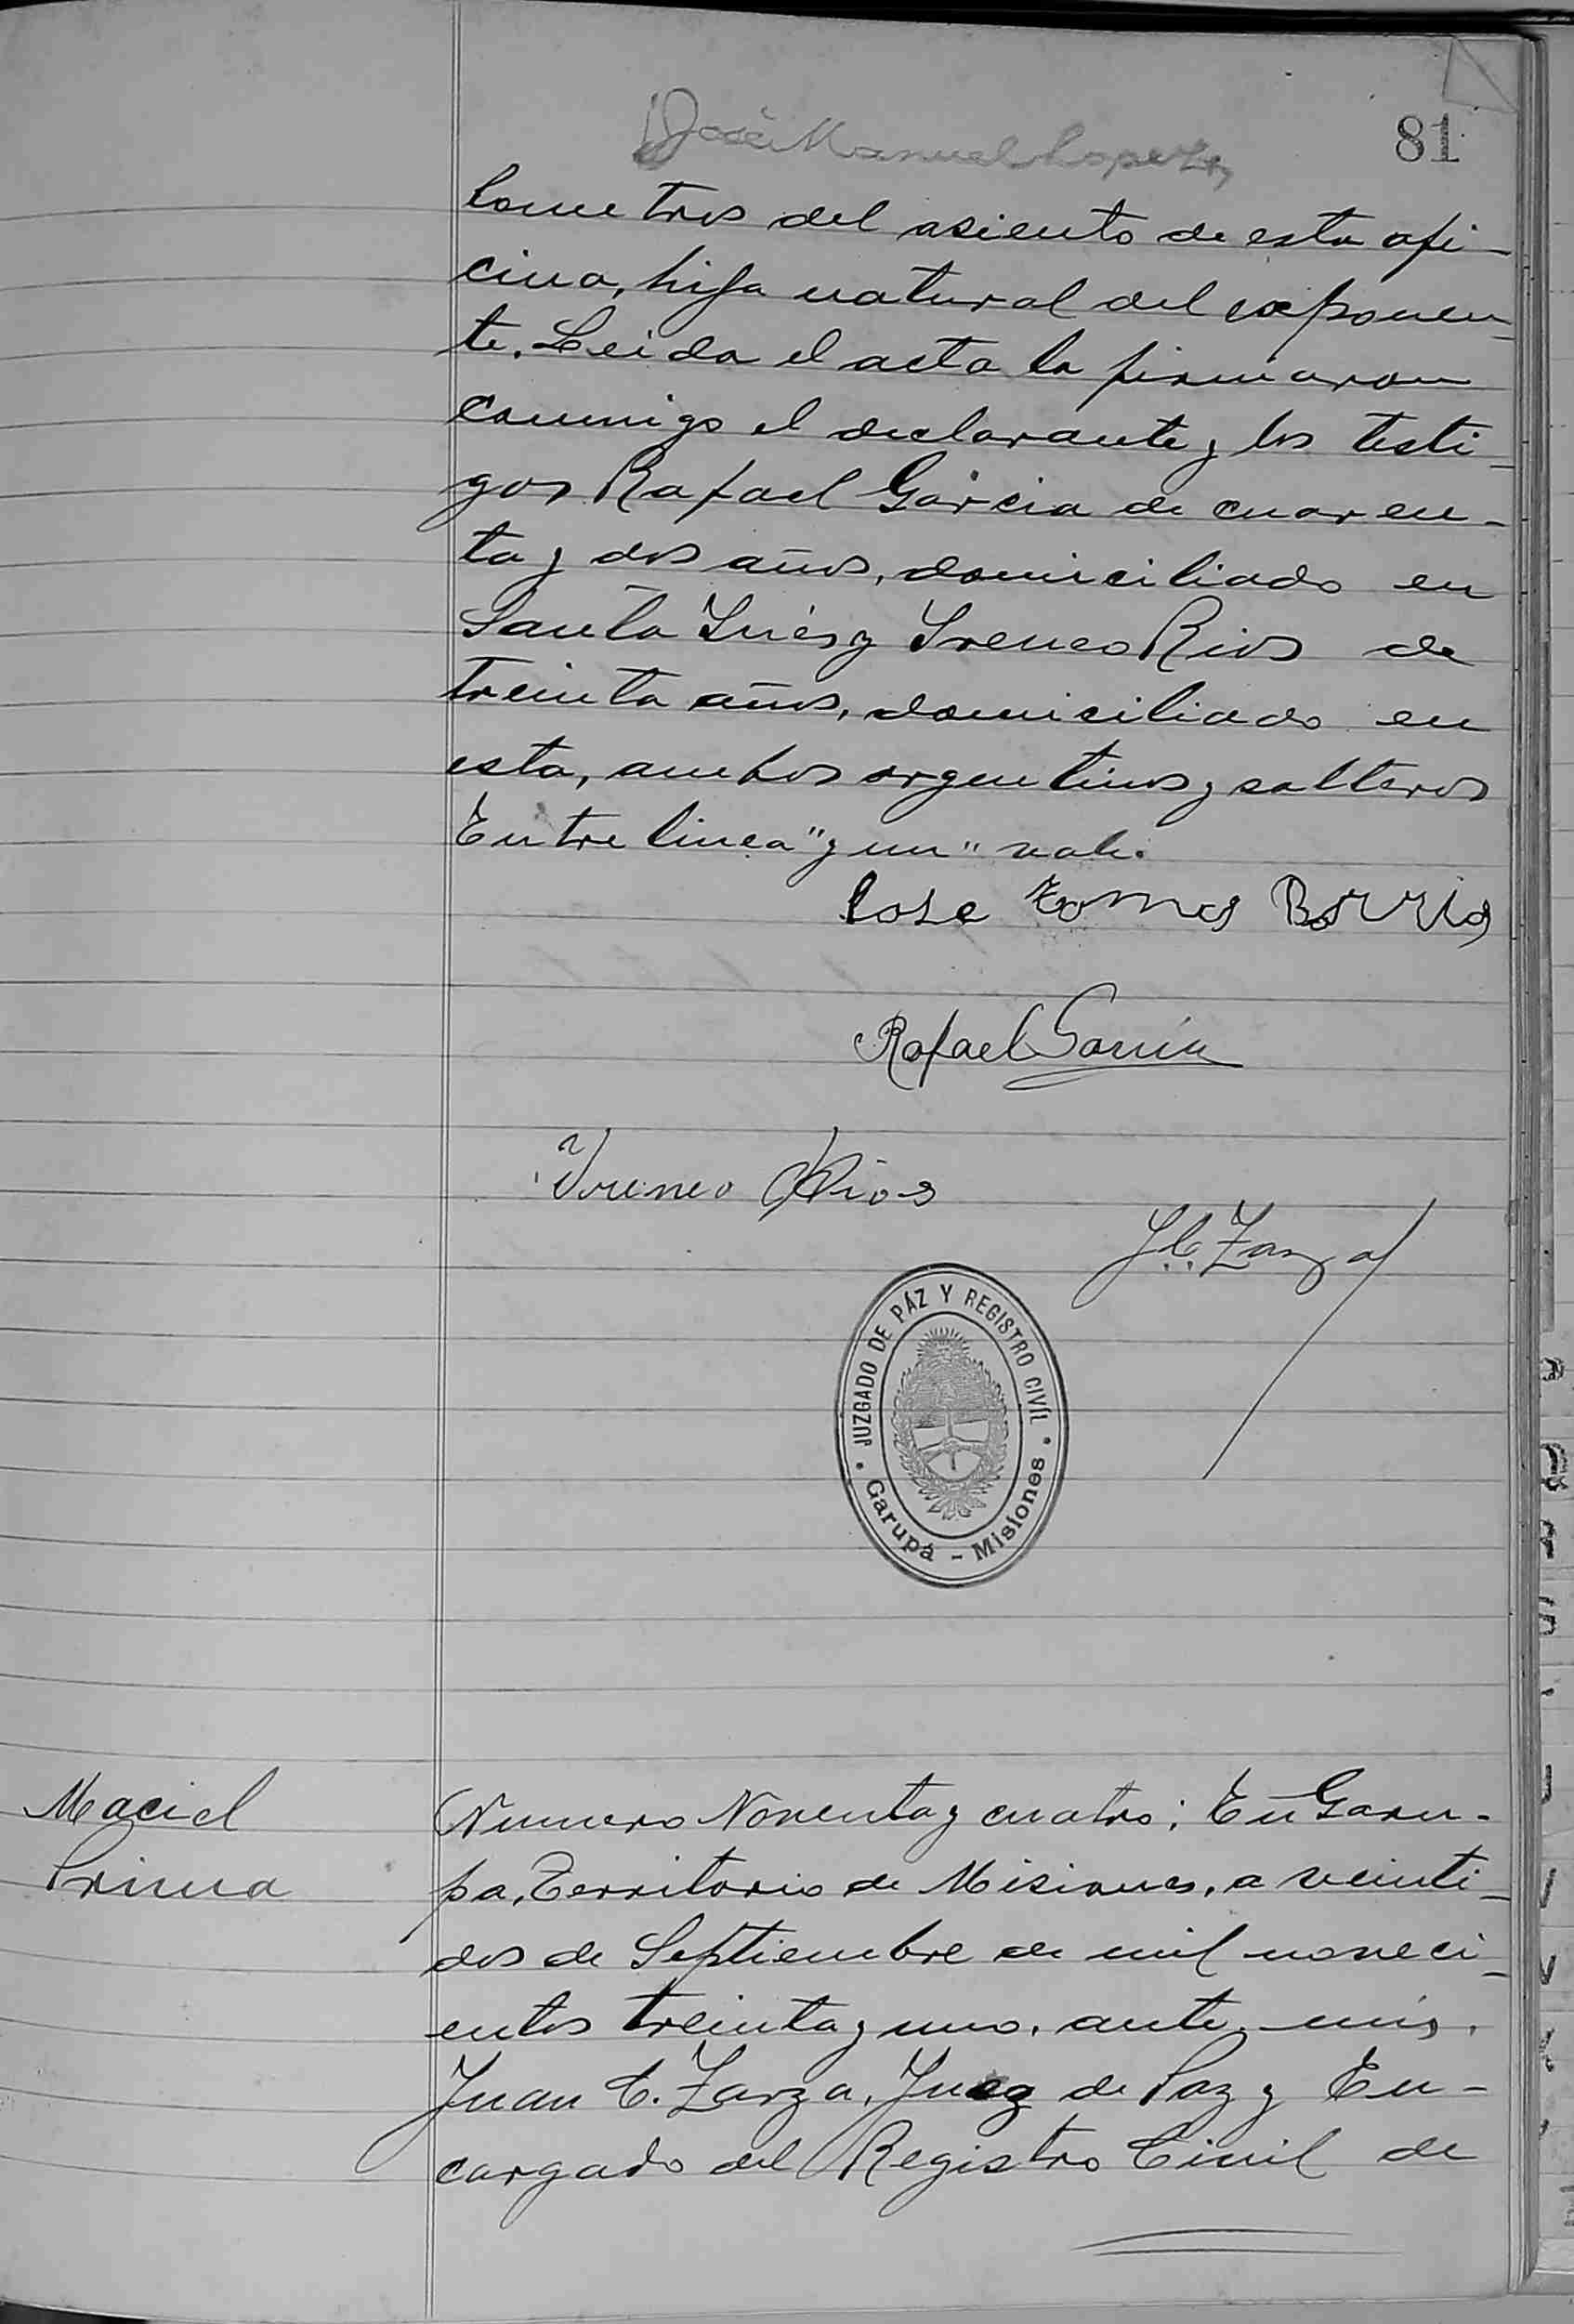 José Manuel Lopez
81
lometros del asiento de esta ofi-
cina, hija natural del exponen-
te. Leida el acta la firmaron
conmigo el declarante y los testi-
gos Rafael Garcia de cuaren-
ta y dos años, domiciliado en
Santa Inés y Ireneo Rios de
treinta años, domiciliado en
esta, ambos argentinos y solteros
Entre linea "y un" vale.
Jose Tomas Borris
Rafael Garcia
Ireneo Rios
J. C. Zarza
JUZGADO DE PÁZ Y REGISTRO CIVÍL
Garupá - Misiones
Maciel
Prima
Numero Noventa y cuatro: En Garu-
pa, Territorio de Misiones, a veinti-
dos de Septiembre de mil noveci-
entos treinta y uno, ante mi,
Juan C. Zarza, Juez de Paz y En-
cargado del Registro Civil de